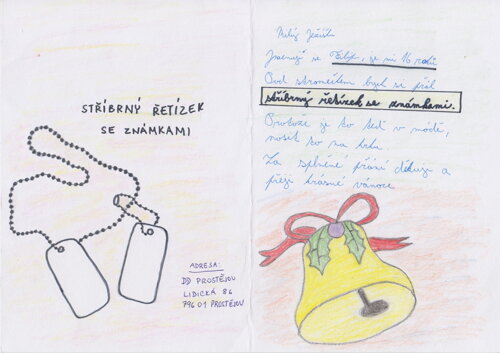 STŘÍBRNÝ ŘETÍZEK
SE ZNÁMKAMI
ADRESA:
DD PROSTĚJOV
LIDICKÁ 86
796 01 PROSTĚJOV
Milý Ježíši
Jmenuji se Filip, je mi 16 roků
Pod stromečkem bych si přál
stříbrný řetízek se známkami.
Protože je to teď v módě,
nosit to na krku.
Za splněné přání děkuji a
přeji krásné vánoce